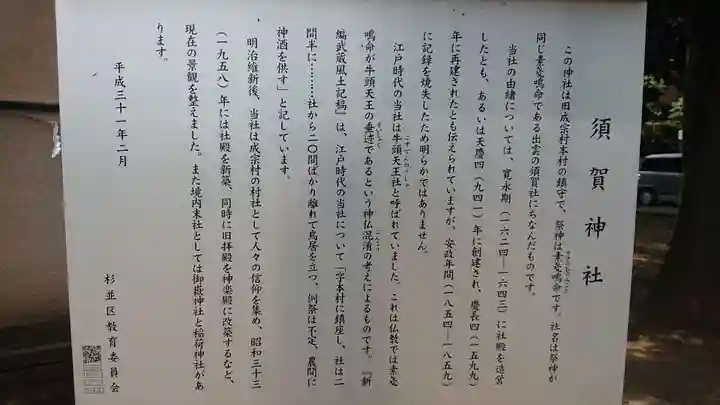 須賀神社
この神社は旧成宗村本村の鎮守で、祭神は素戔嗚命です。社名は祭神が
同じ素戔嗚命である出雲の須賀社にちなんだものです。
当社の由緒については、寛永期(一六二四―一六四三)に社殿を造営
したとも、あるいは天慶四(九四一)年に創建され、慶長四(一五九九)
年に再建されたとも伝えられていますが、安政年間(一八五四―一八五九)
に記録を焼失したため明らかではありません。
江戸時代の当社は牛頭天王社と呼ばれていました。これは仏教では素戔
嗚命が牛頭天王の垂迹であるという神仏混淆の考えによるものです。『新
編武蔵風土記稿』は、江戸時代の当社について「字本村に鎮座し、社は二
間半に………社から二〇間ばかり離れて鳥居を立つ、例祭は不定、農間に
神酒を供す」と記しています。
明治維新後、当社は成宗村の村社として人々の信仰を集め、昭和三十三
(一九五八)年には社殿を新築、同時に旧拝殿を神楽殿に改築するなど、
現在の景観を整えました。また境内末社としては御嶽神社と稲荷神社があ
ります。
平成三十一年二月
杉並区教育委員会